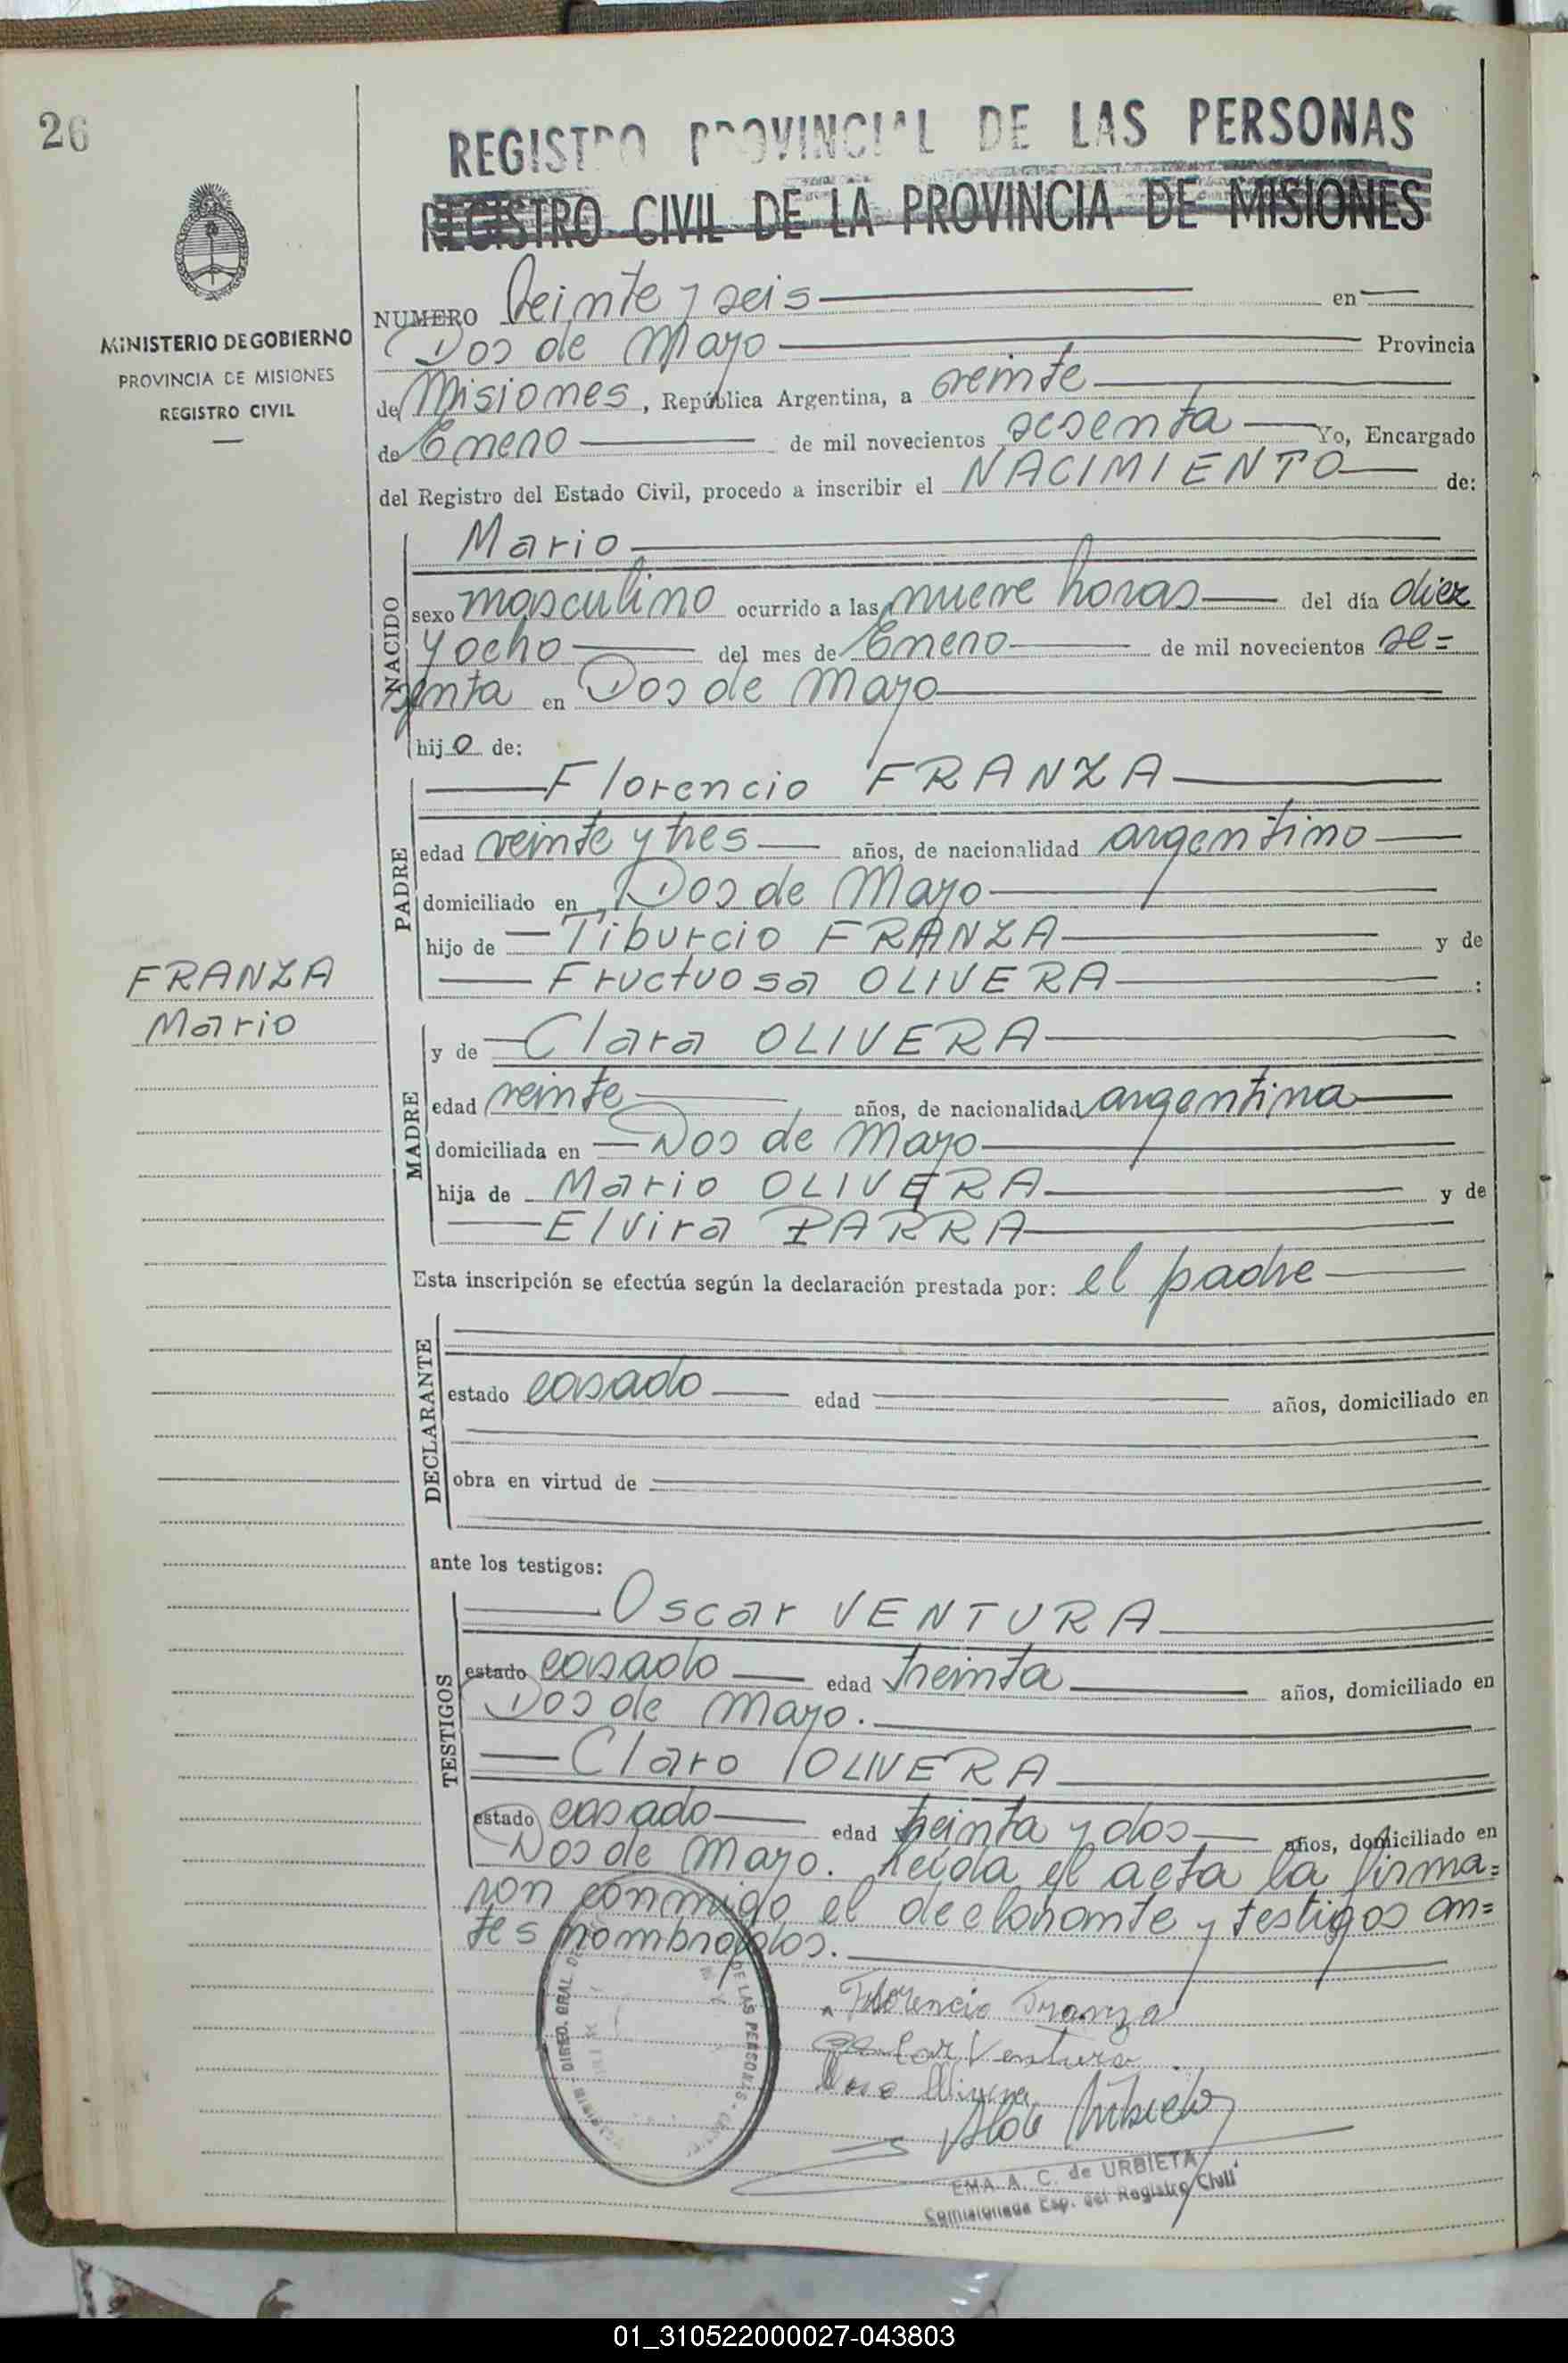 26
REGISTRO PROVINCIAL DE LAS PERSONAS
REGISTRO CIVIL DE LA PROVINCIA DE MISIONES
MINISTERIO DE GOBIERNO
PROVINCIA DE MISIONES
REGISTRO CIVIL
NUMERO Veinte y seis en
Dos de Mayo Provincia
de Misiones, República Argentina, a veinte
de Enero de mil novecientos sesenta Yo, Encargado
del Registro del Estado Civil, procedo a inscribir el NACIMIENTO de:
NACIDO
Mario
sexo masculino ocurrido a las nueve horas del día diez
y ocho del mes de Enero de mil novecientos se=
senta en Dos de Mayo
hijo de:
PADRE
Florencio FRANZA
edad veinte y tres años, de nacionalidad argentino
domiciliado en Dos de Mayo
hijo de Tiburcio FRANZA y de
Fructuosa OLIVERA :
FRANZA
Mario
MADRE
y de Clara OLIVERA
edad veinte años, de nacionalidad argentina
domiciliada en Dos de Mayo
hija de Mario OLIVERA y de
Elvira PARRA
Esta inscripción se efectúa según la declaración prestada por: el padre
DECLARANTE
estado casado edad años, domiciliado en
obra en virtud de
ante los testigos:
TESTIGOS
Oscar VENTURA
estado casado edad treinta años, domiciliado en
Dos de Mayo.
Claro OLIVERA
estado casado edad treinta y dos años, domiciliado en
Dos de Mayo. Leída el acta la firma=
ron conmigo el declarante y testigos an=
tes nombrados.
Florencio Franza
Ventura
DE LAS PERSONAS
EMA A. C. de URBIETA
Comisionada Esp. del Registro Civil
01_310522000027-043803